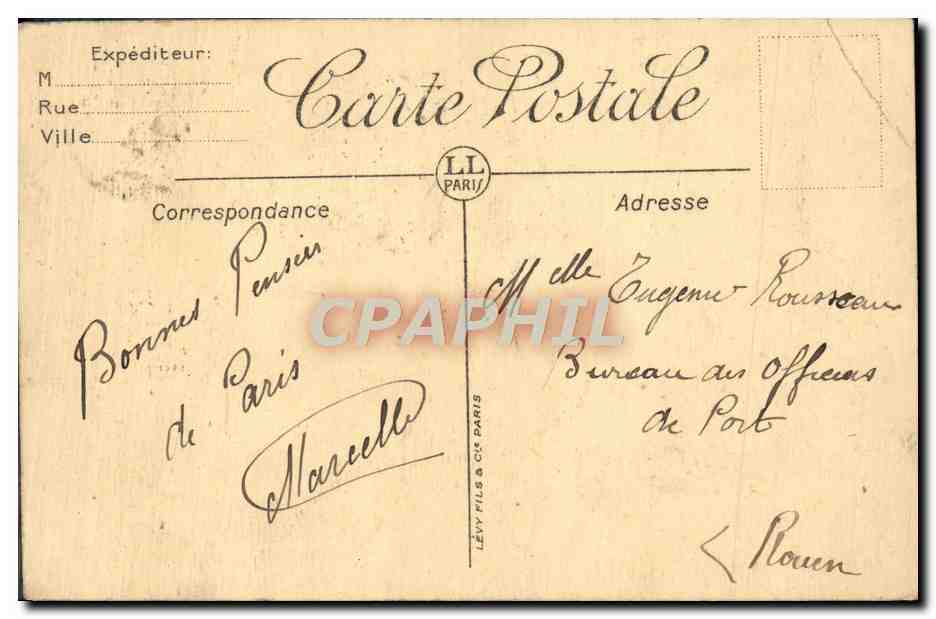 Expéditeur:
M
Rue
Ville
Carte Postale
LL
PARIS
Correspondance
Adresse
Bonnes Pensées
de Paris
Marcelle
Melle Eugenie Rousseau
Bureau des Officiers
de Port
Rouen
LÉVY FILS & Cie PARIS
CPAPHIL